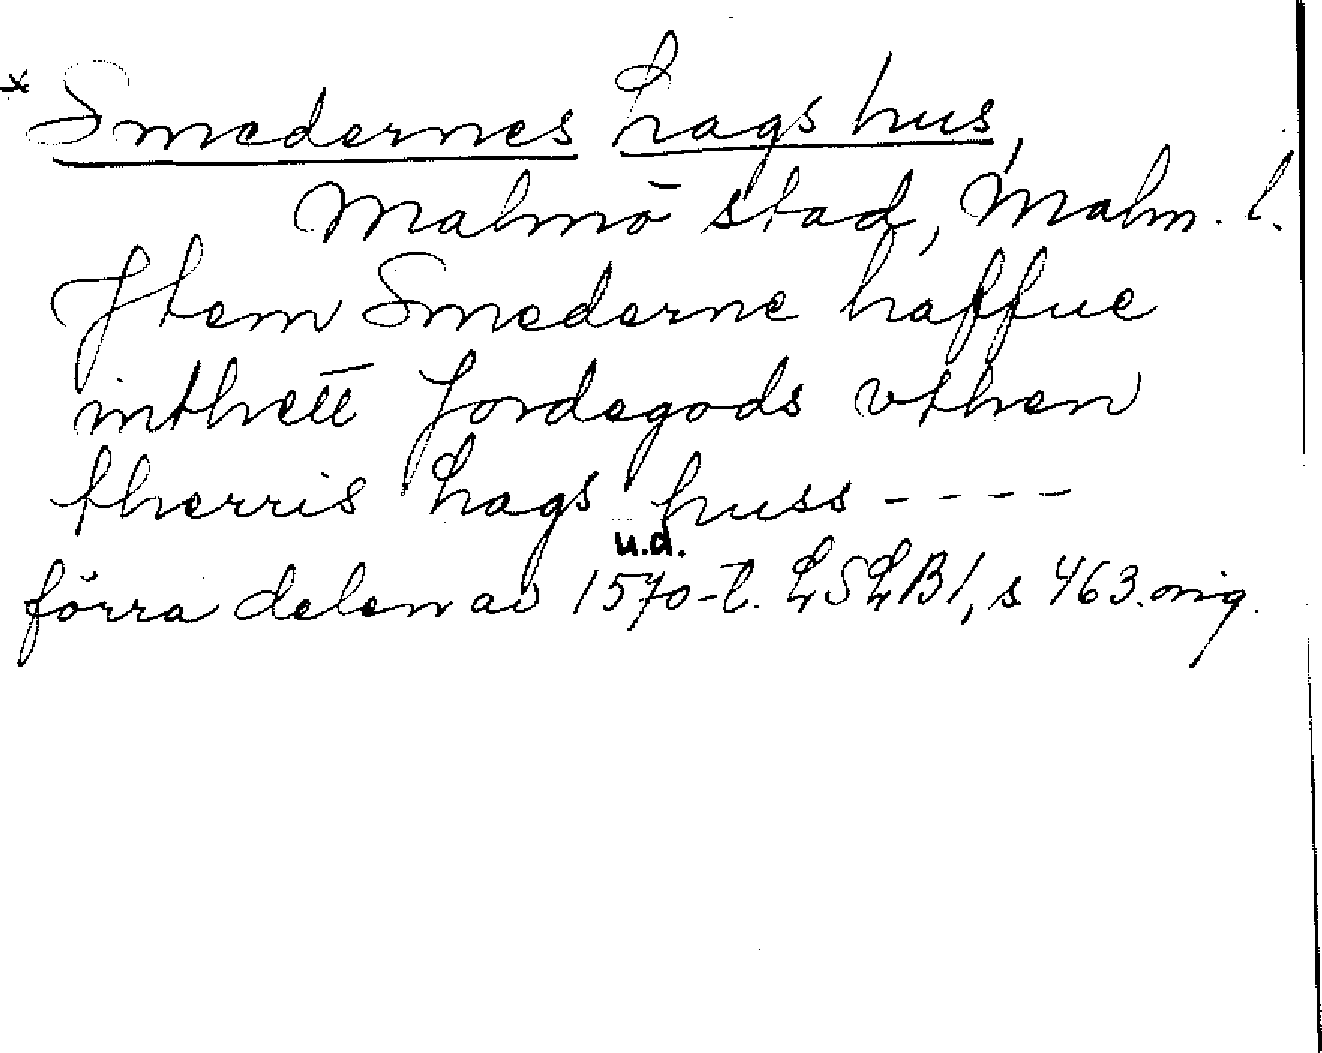 * Smedernes Lags hus,
Malmö stad, Malm. l.
Jtem Smederne haffue
inthett Jordegods vthen
therris Lags huss ----
u.d.
förra delen av 1570-t. LSLB1, s 463. orig.